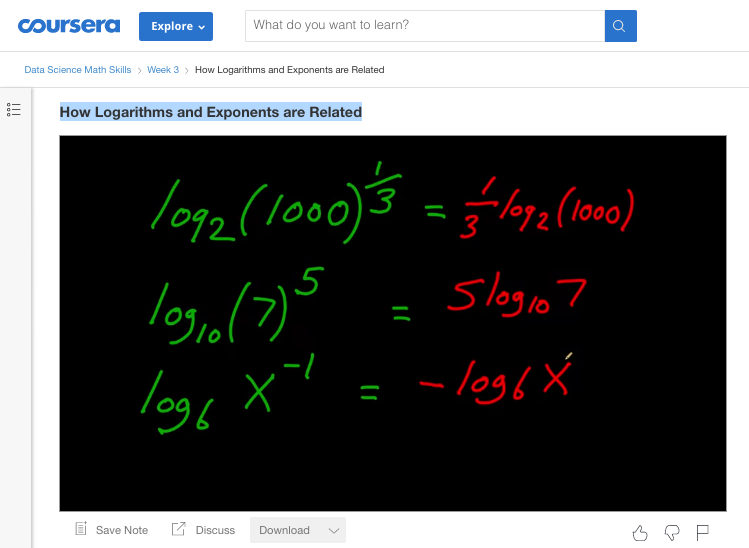 coursera Explore What do you want to learn?
Data Science Math Skills > Week 3 > How Logarithms and Exponents are Related
How Logarithms and Exponents are Related
log₂(1000)^(1/3) = 1/3 log₂(1000)
log₁₀(7)⁵ = 5 log₁₀ 7
log₆ X⁻¹ = − log₆ X
Save Note Discuss Download